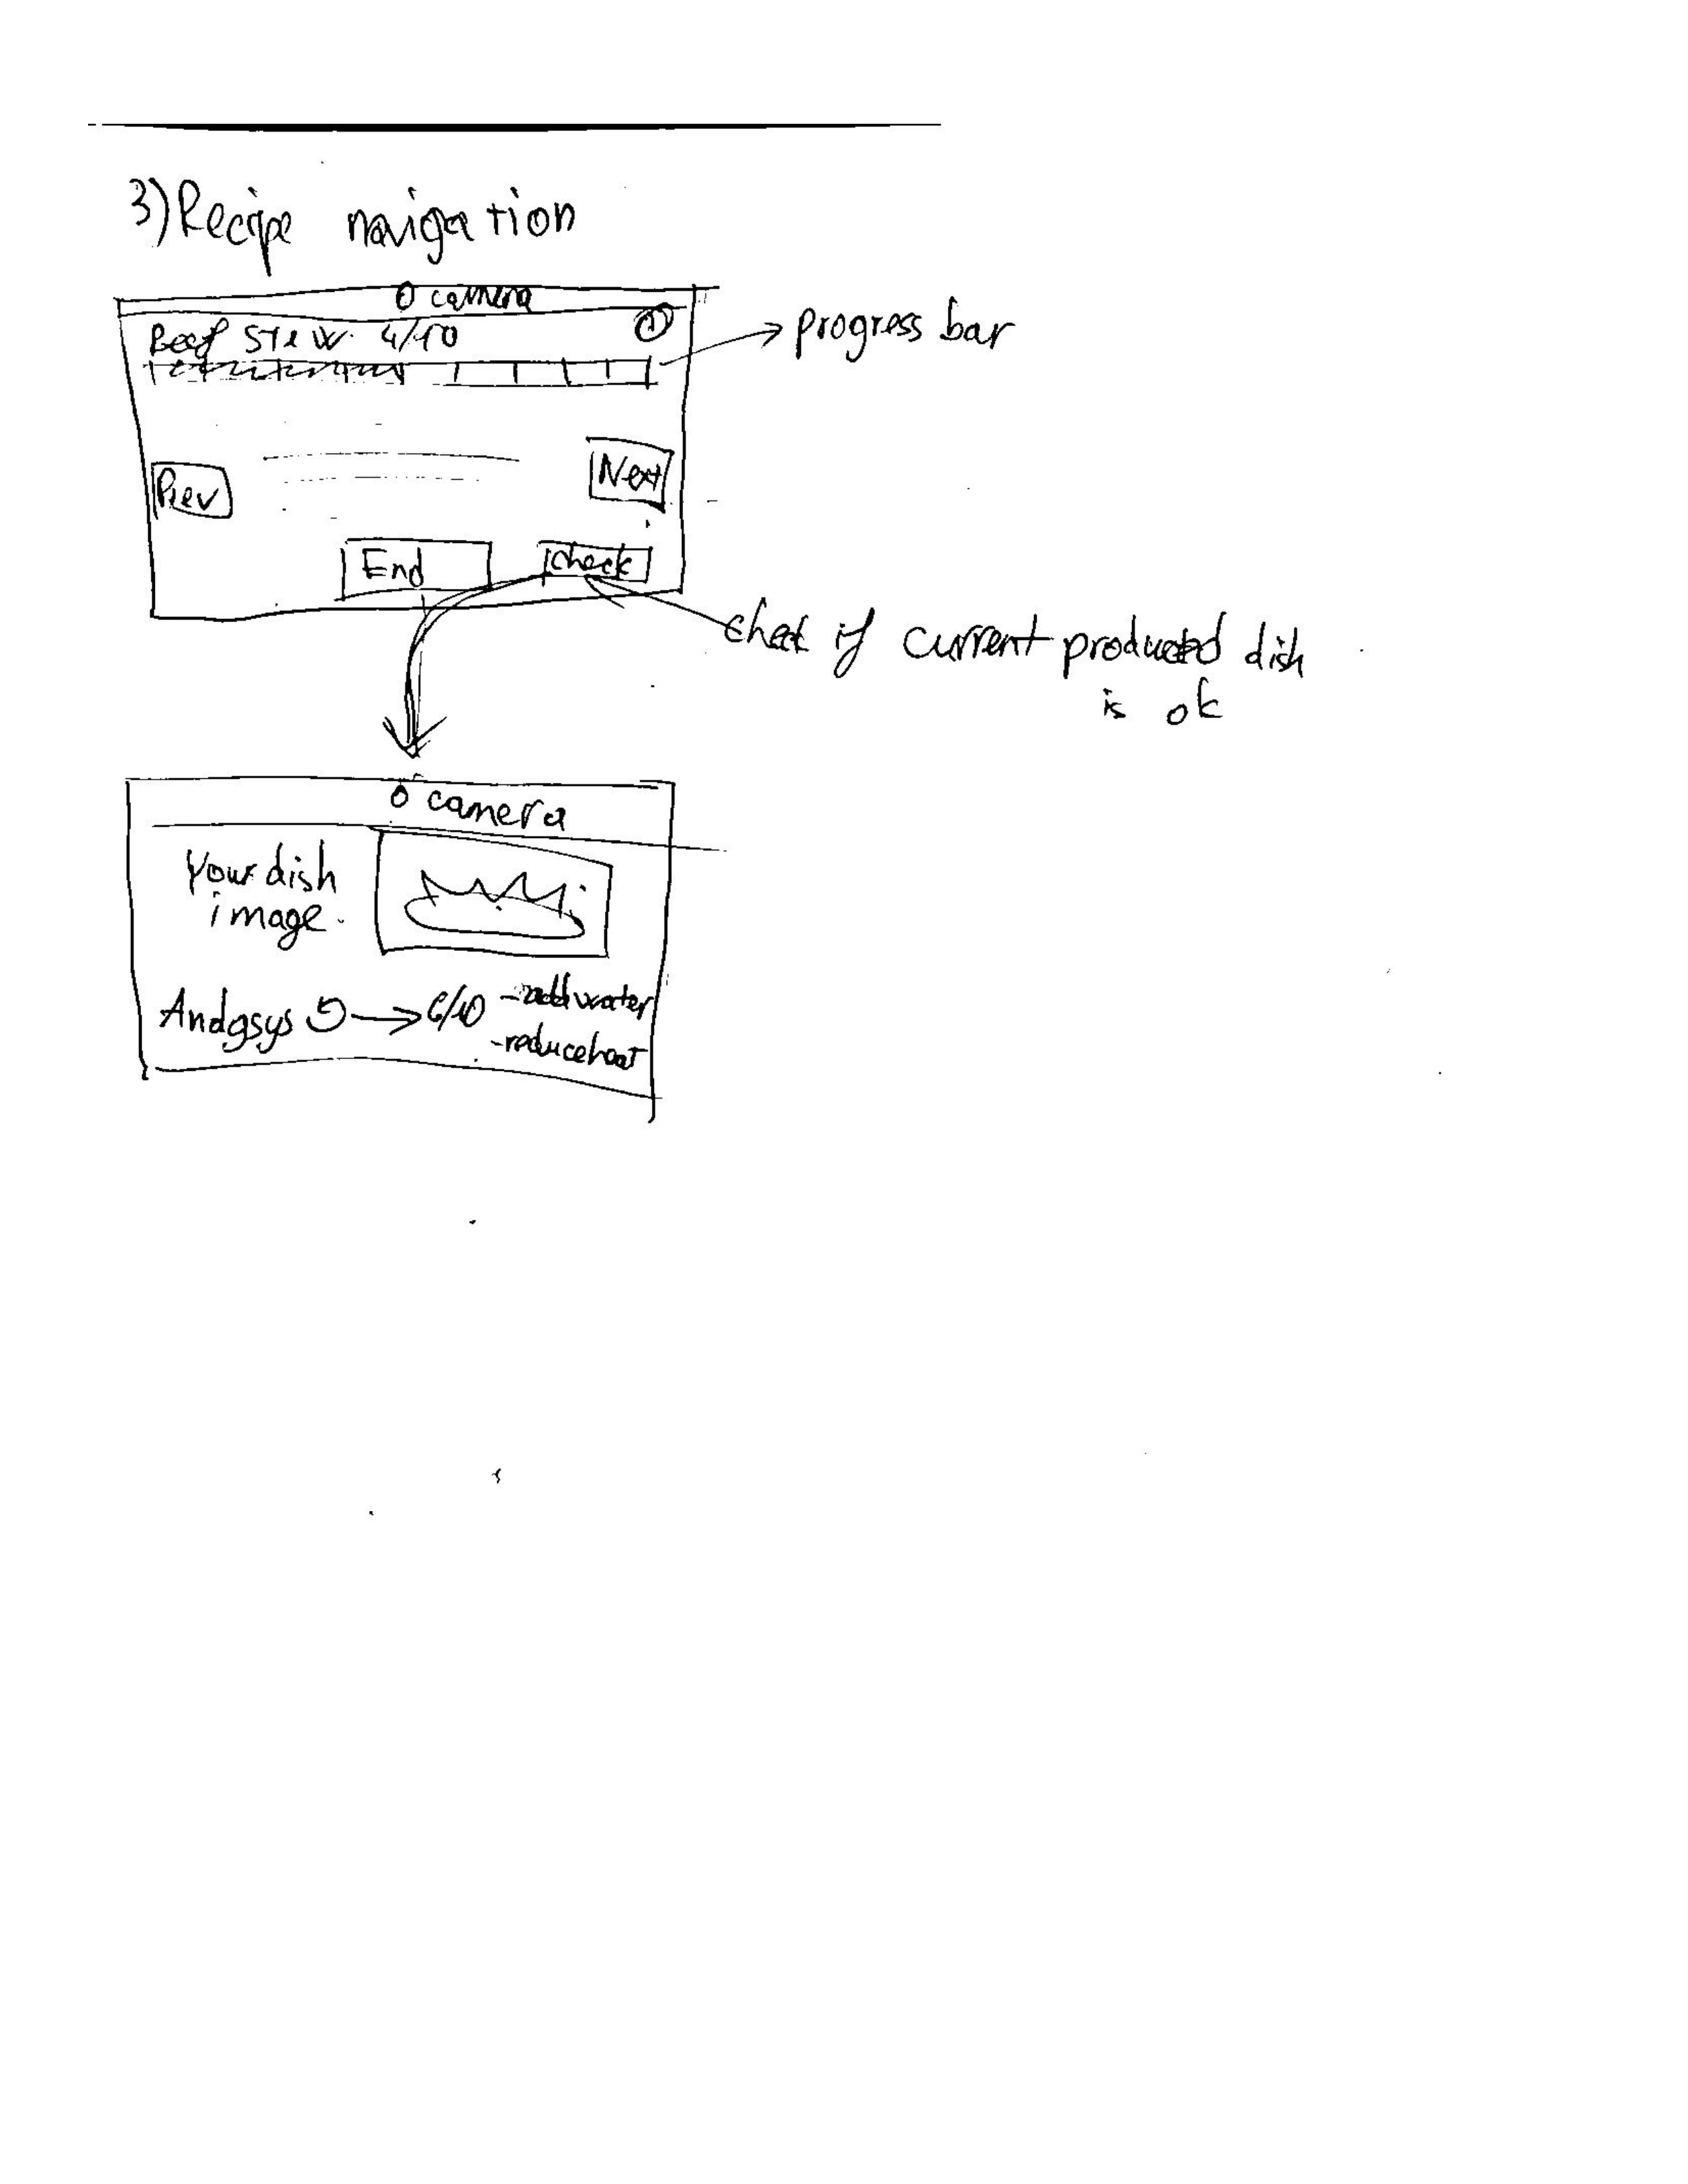 3) Recipe navigation
camera
Beef Stew 4/10
progress bar
Prev
Next
End
check
check if current producted dish
is ok
camera
Your dish
image
6/10 - add water
- reduce heat